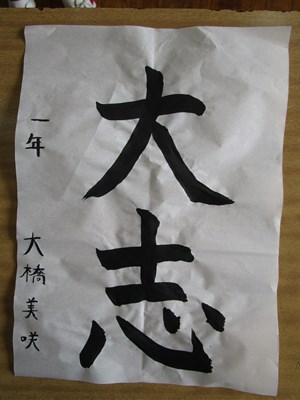 大志
一年 大橋美咲